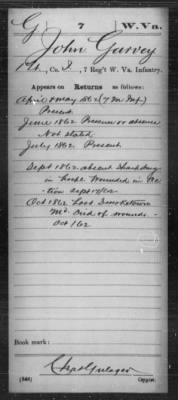 G 7 W. Va.
John Garvey
Pt., Co. I, 7 Reg't W. Va. Infantry.
Appears on Returns as follows:
April & May 1862 (7 Mo. Inf.)
Present
June 1862 Presence or absence
Not stated
July 1862 Present
Sept 1862 absent Sharpsburg
in hospl. Wounded in Ac-
tion Sept 17/62
Oct 1862 Loss Smoketown
Md. Died of wounds.
Oct 1 62
Book mark:
(546) Copyist.